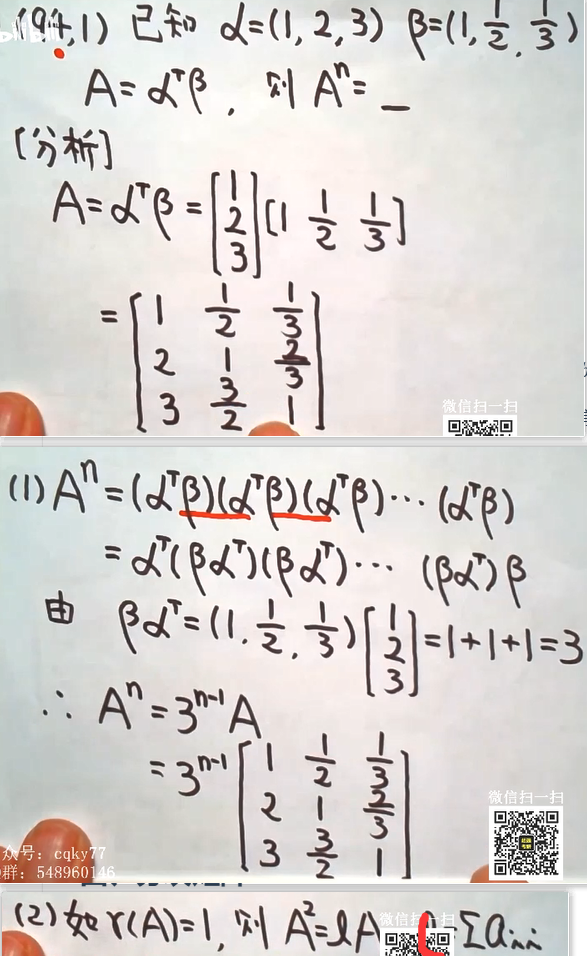 (94,1) 已知 α=(1, 2, 3) β=(1, 1/2, 1/3)
A=αᵀβ, 则 Aⁿ= _
[分析]
A=αᵀβ=[1 2 3][1 1/2 1/3]
=[1 1/2 1/3
2 1 2/3
3 3/2 1]
微信扫一扫
(1) Aⁿ=(αᵀβ)(αᵀβ)(αᵀβ)⋯(αᵀβ)
=αᵀ(βαᵀ)(βαᵀ)⋯(βαᵀ)β
由 βαᵀ=(1, 1/2, 1/3)[1 2 3]=1+1+1=3
∴ Aⁿ=3ⁿ⁻¹A
=3ⁿ⁻¹[1 1/2 1/3
2 1 2/3
3 3/2 1]
微信扫一扫
众号: cqky77
群: 548960146
(2) 如 r(A)=1, 则 A²=lA
微信扫一扫
Σaᵢᵢ